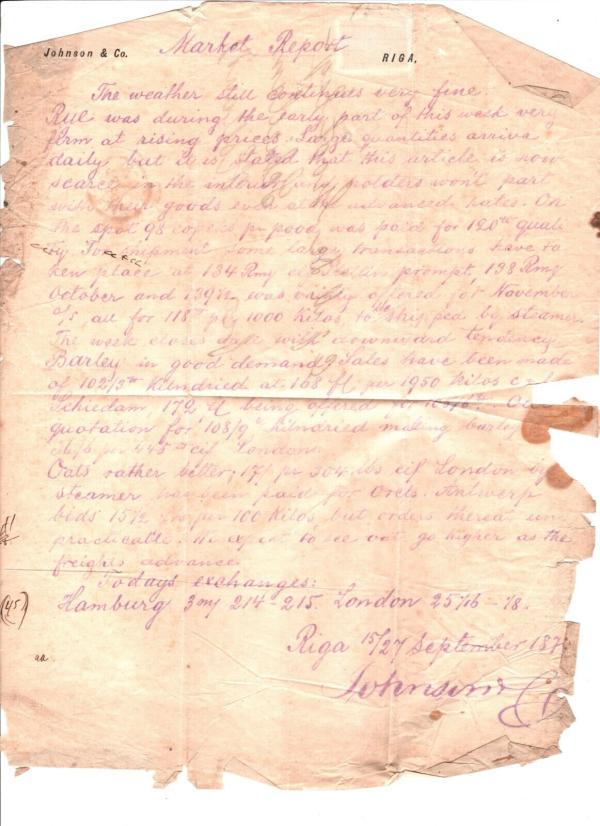 Johnson & Co. Market Report RIGA.
The weather still continues very fine.
Rye was during the early part of this week very
firm at rising prices. Large quantities arrive
daily but it is stated that this article is now
scarce in the interior, any holders won't part
with their goods even at the advanced rates. On
the spot 98 copeks pr pood was paid for 120 th quali
ty. For shipment some large transactions have ta
ken place at 134 Rmy prompt, 138 Rmy
October and 139½ was only offered for November
o/s, all for 118 per 1000 kilos to be shipped by steamer.
The week closes with downward tendency.
Barley in good demand, Sales have been made
of 102/3 th kilndried at 168 fl per 1950 kilos c
Schiedam, 172 fl being offered for
quotation for 108/9 kilndried malting barley
per 445 cif London.
Oats rather better; 17/ pr 304 lbs cif London by
steamer has been paid for Orels. Antwerp
bids 15½ frs per 100 kilos but orders thereat un
practicable. We expect to see oats go higher as the
freights advance.
Todays exchanges:
Hamburg 3 my 214 - 215. London 25 - 7/8.
(45)
Riga 15/27 September 187
Johnson & Co